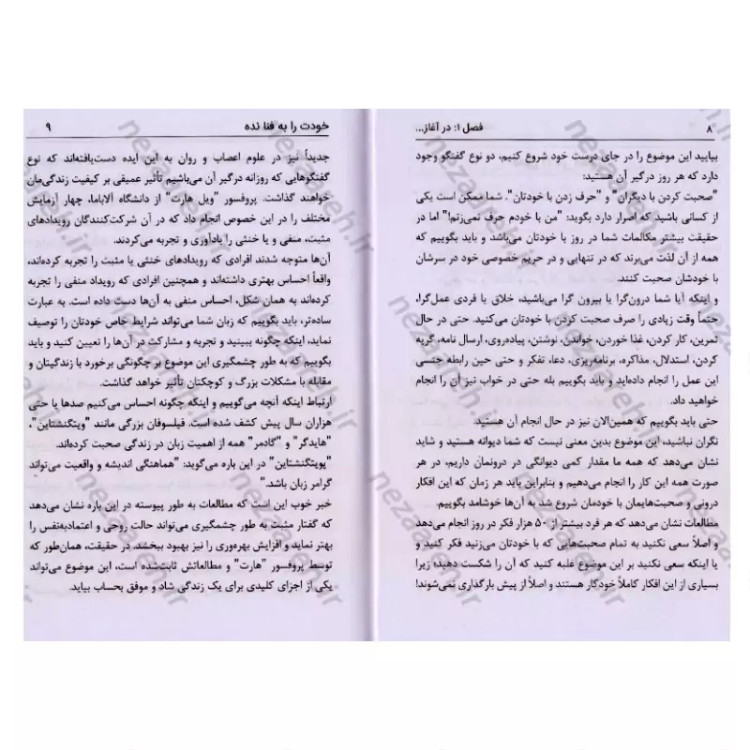 ۸
فصل ۱: در آغاز...
بیایید این موضوع را در جای درست خود شروع کنیم، دو نوع گفتگو وجود
دارد که هر روز درگیر آن هستید:
"صحبت کردن با دیگران" و "حرف زدن با خودتان". شما ممکن است یکی
از کسانی باشید که اصرار دارد بگوید: "من با خودم حرف نمی‌زنم!" اما در
حقیقت بیشتر مکالمات شما در روز با خودتان می‌باشد و باید بگوییم که
همه از آن لذّت می‌برند که در تنهایی و در حریم خصوصی خود در سرشان
با خودشان صحبت کنند.
و اینکه آیا شما درون‌گرا یا بیرون گرا می‌باشید، خلاق یا فردی عمل‌گرا،
حتماً وقت زیادی را صرف صحبت کردن با خودتان می‌کنید. حتی در حال
تمرین، کار کردن، غذا خوردن، خواندن، نوشتن، پیاده‌روی، ارسال نامه، گریه
کردن، استدلال، مذاکره، برنامه‌ریزی، دعا، تفکر و حتی حین رابطه جنسی
این عمل را انجام داده‌اید و باید بگوییم بله حتی در خواب نیز آن را انجام
خواهید داد.
حتی باید بگوییم که همین‌الان نیز در حال انجام آن هستید.
نگران نباشید، این موضوع بدین معنی نیست که شما دیوانه هستید و شاید
نشان می‌دهد که همه ما مقدار کمی دیوانگی در درونمان داریم، در هر
صورت همه این کار را انجام می‌دهیم و بنابراین باید هر زمان که این افکار
درونی و صحبت‌هایمان با خودمان شروع شد به آن‌ها خوشامد بگوییم.
مطالعات نشان می‌دهد که هر فرد بیشتر از ۵۰ هزار فکر در روز انجام می‌دهد
و اصلاً سعی نکنید به تمام صحبت‌هایی که با خودتان می‌زنید فکر کنید و
یا اینکه سعی نکنید بر این موضوع غلبه کنید که آن را شکست دهید؛ زیرا
بسیاری از این افکار کاملاً خودکار هستند و اصلاً از پیش بارگذاری نمی‌شوند!
خودت را به فنا نده
۹
جدیداً نیز در علوم اعصاب و روان به این ایده دست‌یافته‌اند که نوع
گفتگوهایی که روزانه درگیر آن می‌باشیم تأثیر عمیقی بر کیفیت زندگی‌مان
خواهند گذاشت. پروفسور "ویل هارت" از دانشگاه آلاباما، چهار آزمایش
مختلف را در این خصوص انجام داد که در آن شرکت‌کنندگان رویدادهای
مثبت، منفی و یا خنثی را یادآوری و تجربه می‌کردند.
آن‌ها متوجه شدند افرادی که رویدادهای خنثی یا مثبت را تجربه کرده‌اند،
واقعاً احساس بهتری داشته‌اند و همچنین افرادی که رویداد منفی را تجربه
کرده‌اند به همان شکل، احساس منفی به آن‌ها دست داده است. به عبارت
ساده‌تر، باید بگوییم که زبان شما می‌تواند شرایط خاص خودتان را توصیف
نماید، اینکه چگونه ببینید و تجربه و مشارکت در آن‌ها را تعیین کنید و باید
بگوییم که به طور چشمگیری این موضوع بر چگونگی برخورد با زندگیتان و
مقابله با مشکلات بزرگ و کوچکتان تأثیر خواهد گذاشت.
ارتباط اینکه آنچه می‌گوییم و اینکه چگونه احساس می‌کنیم صدها یا حتی
هزاران سال پیش کشف شده است. فیلسوفان بزرگی مانند "ویتگنشتاین"،
"هایدگر" و "گادمر" همه از اهمیت زبان در زندگی صحبت کرده‌اند.
"ویتگنشتاین" در این باره می‌گوید: "هماهنگی اندیشه و واقعیت می‌تواند
گرامر زبان باشد."
خبر خوب این است که مطالعات به طور پیوسته در این باره نشان می‌دهد
که گفتار مثبت به طور چشمگیری می‌تواند حالت روحی و اعتمادبه‌نفس را
بهتر نماید و افزایش بهره‌وری را نیز بهبود ببخشد. در حقیقت، همان‌طور که
توسط پروفسور "هارت" و مطالعاتش ثابت‌شده است، این موضوع می‌تواند
یکی از اجزای کلیدی برای یک زندگی شاد و موفق بحساب بیاید.
nezaareh.ir